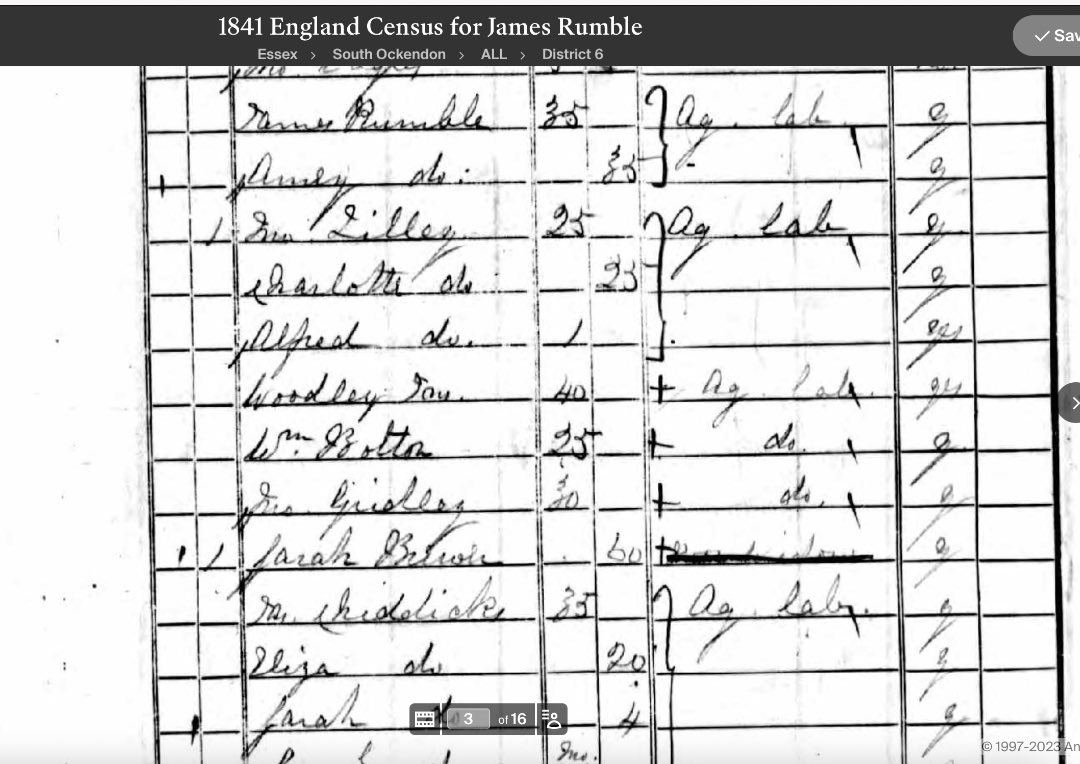 1841 England Census for James Rumble
✓ Sav
Essex > South Ockendon > ALL > District 6
James Rumble 35 Ag. lab
Amey do: 35 -
1 Jno. Lilley 25 Ag. lab
Charlotte do 25
Alfred do. 1
Woodley Jno. 40 + Ag. lab.
Wm. Bolton 25 + do.
Jno. Gridley 30 + do.
1 Sarah Brewer 60 +
Chiddicks 35 Ag. lab.
Eliza do 20
Sarah 4
3 of 16
© 1997-2023 An